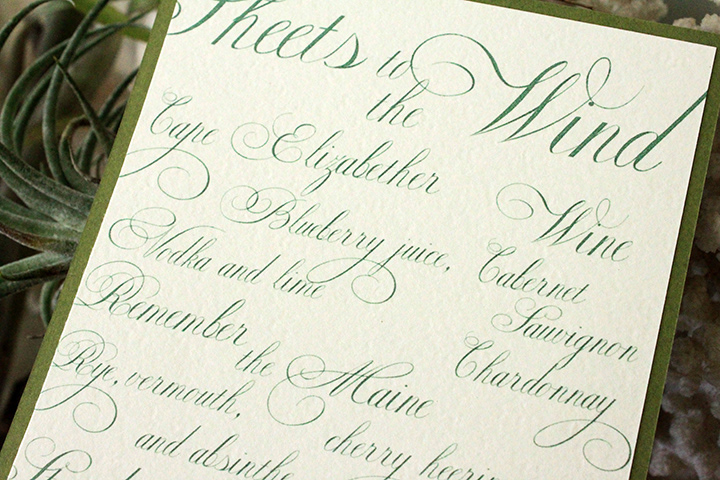 Sheets to the Wind
Cape Elizabether
Blueberry juice,
Vodka and lime
Remember the Maine
Rye, vermouth, cherry heering
and absinthe
Wine
Cabernet
Sauvignon
Chardonnay